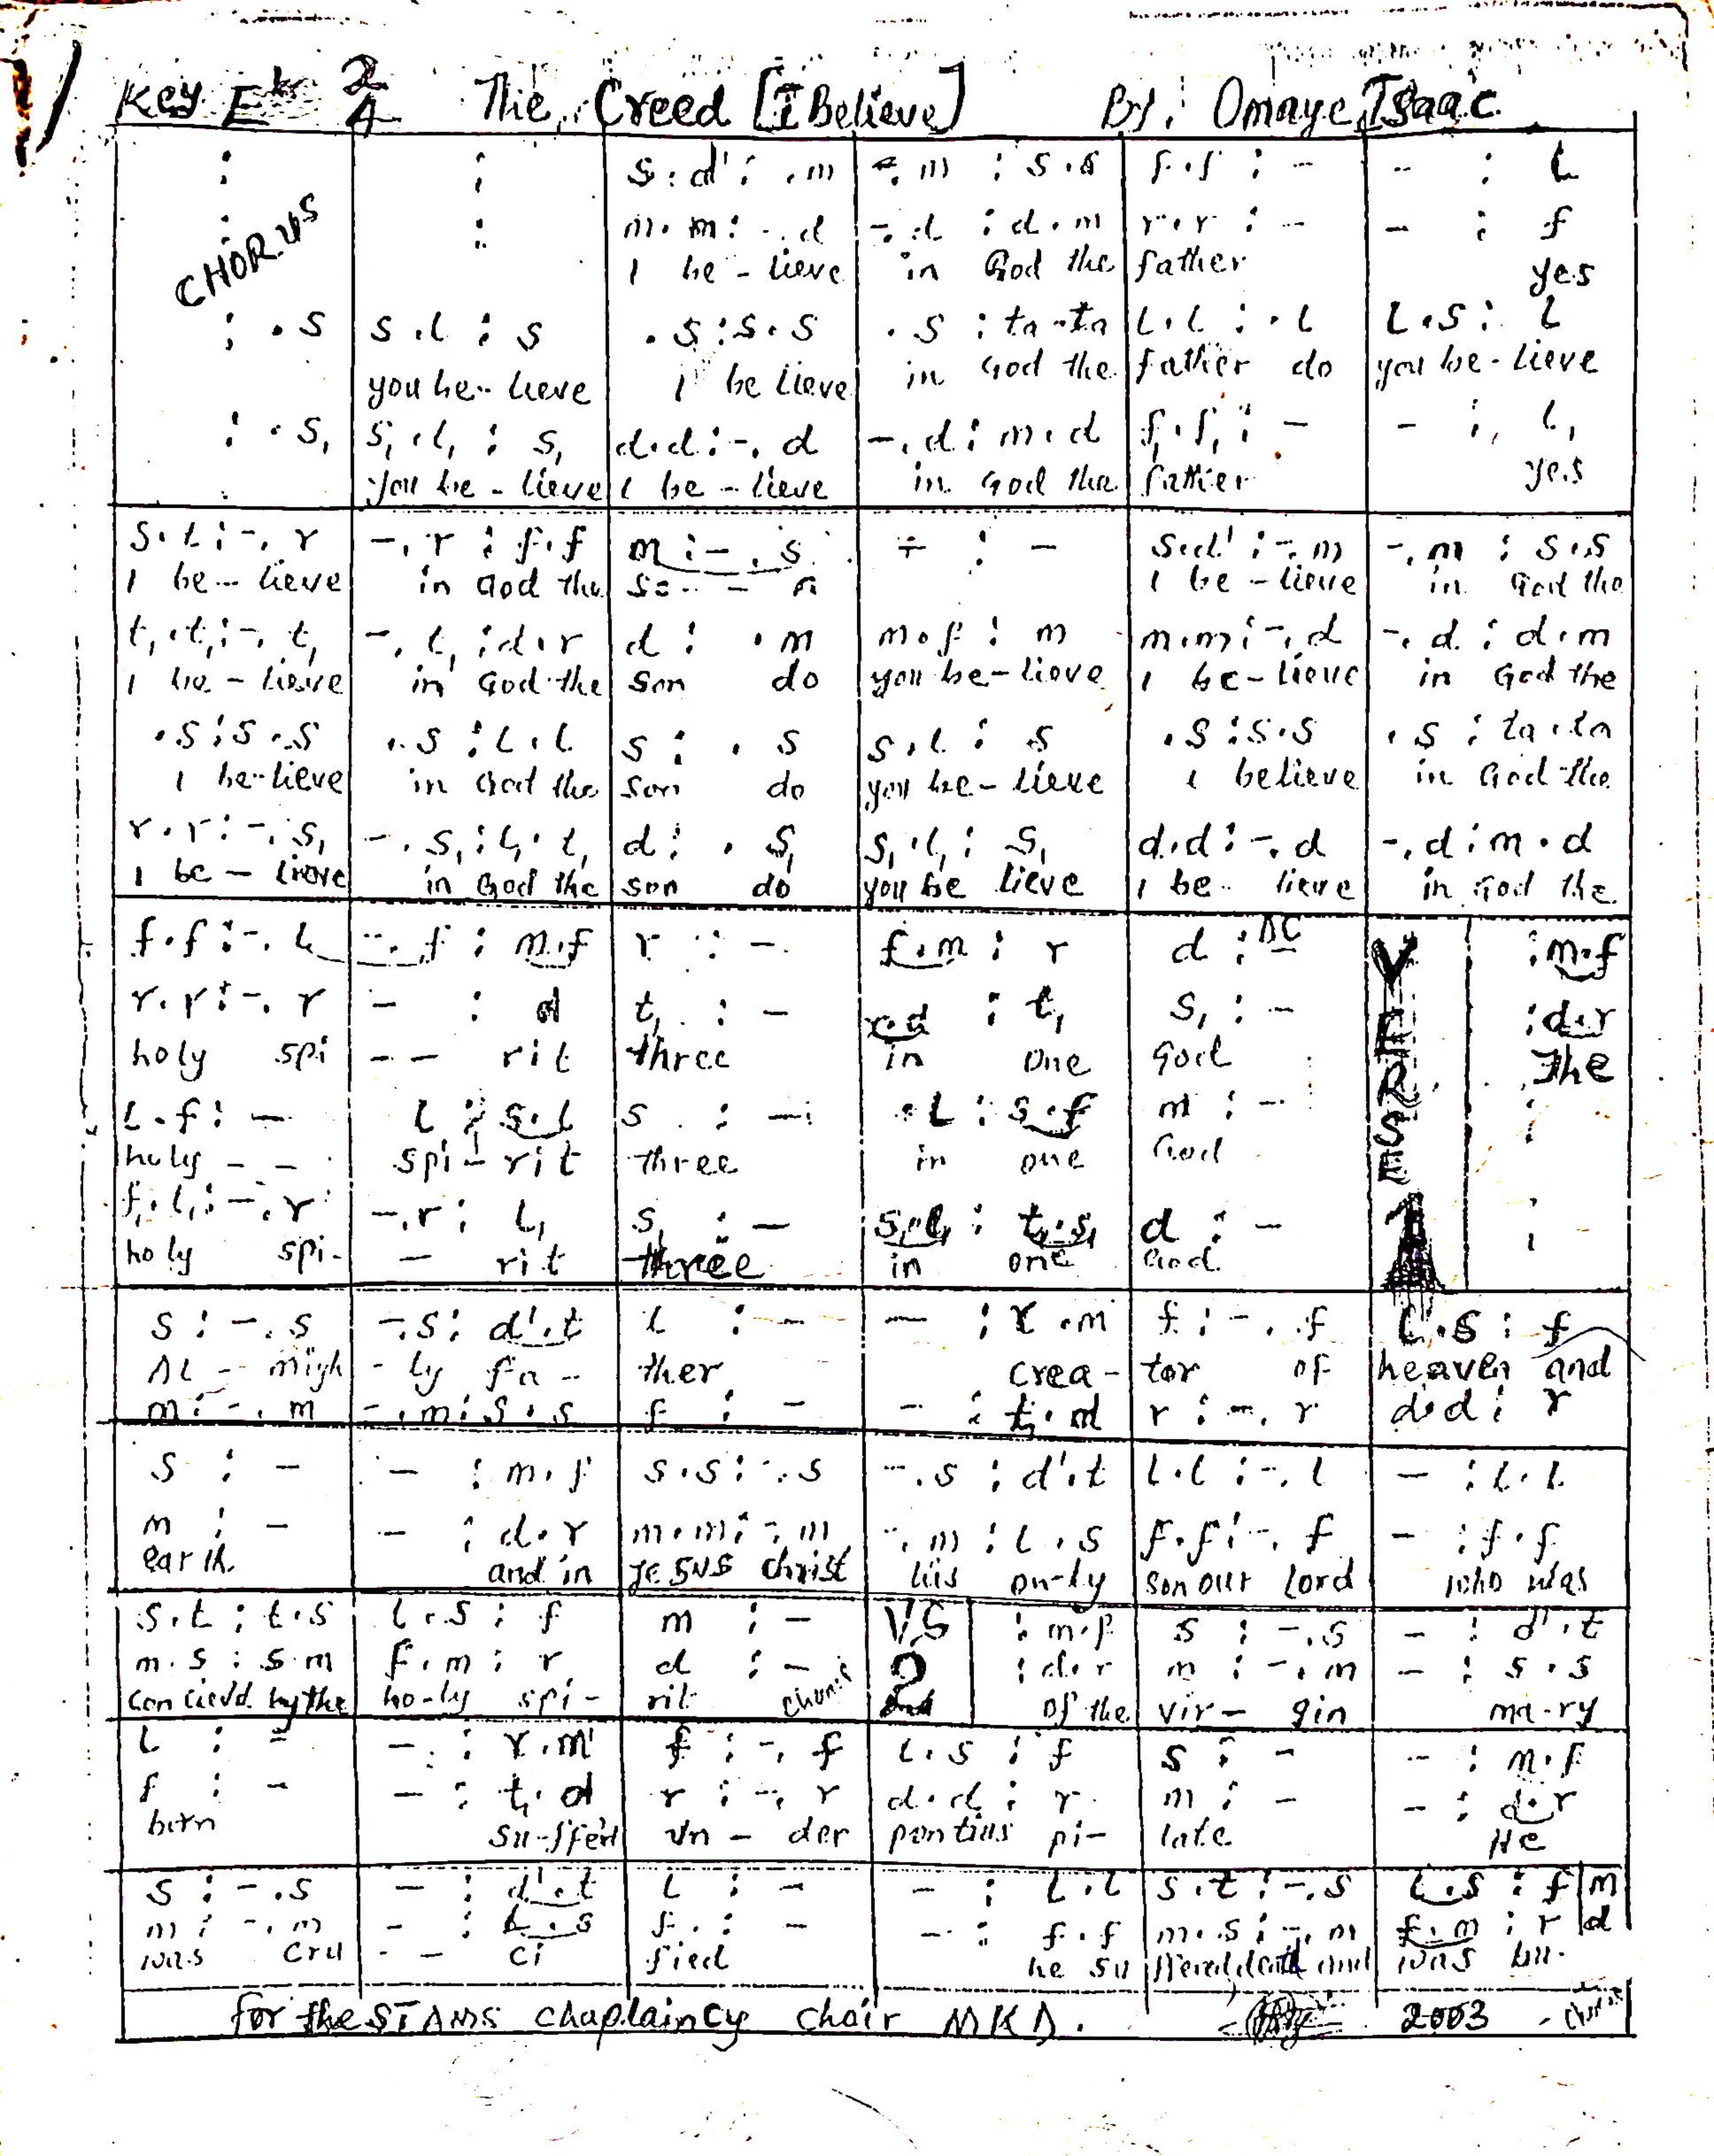 Key Eb 2/4 The Creed [I Believe] By: Omaye Isaac
CHORUS
: : s.d' : .m -.m : s.s f.f : - - : l
: : m.m : -.d -.d : d.m r.r : - - : f
I be - lieve in God the father yes
: .s s.l : s .s : s.s .s : ta-ta l.l : .l l.s : l
you be - lieve I be lieve in God the father do you be - lieve
: .s, s,.l, : s, d.d : -.d -.d : m.d f,.f, : - - : l,
you be - lieve I be - lieve in God the father yes
s.t : -.r -.r : f.f m : -.s - : - s.d' : -.m -.m : s.s
I be - lieve in God the so - - n I be - lieve in God the
t,.t, : -.t, -.t, : d.r d : .m m.f : m m.m : -.d -.d : d.m
I be - lieve in God the son do you be - lieve I be - lieve in God the
.s : s.s .s : l.l s : .s s.l : s .s : s.s .s : ta.ta
I be - lieve in God the son do you be - lieve I believe in God the
r.r : -.s, -.s, : l,.t, d : .s, s,.l, : s, d.d : -.d -.d : m.d
I be - lieve in God the son do you be lieve I be - lieve in God the
f.f : -.l -.f : m.f r : - f.m : r d : - DC VERSE 1 : m.f
r.r : -.r - : d t, : - r.d : t, s, : - : d.r
holy spi - - rit three in one God The
l.f : - l : s.l s : - .l : s.f m : - :
holy - - spi - rit three in one God
f,.l, : -.r -.r : l, s, : - s,.l, : t,.s, d : - :
holy spi - - rit three in one God
s : -.s -.s : d'.t l : - - : r.m f : -.f l.s : f
AL - migh - ty fa - ther crea - tor of heaven and
m : -.m -.m : s.s f : - - : t,.d r : -.r d.d : r
s : - - : m.f s.s : -.s -.s : d'.t l.l : -.l - : l.l
m : - - : d.r m.m : -.m -.m : l.s f.f : -.f - : f.f
earth. and in JESUS Christ his on-ly son our Lord who was
s.t : t.s l.s : f m : - VS 2 : m.f s : -.s - : d'.t
m.s : s.m f.m : r d : - : d.r m : -.m - : s.s
concievd by the ho-ly spi - rit chorus of the vir - gin ma-ry
l : - - : r.m f : -.f l.s : f s : - - : m.f
f : - - : t,.d r : -.r d.d : r m : - - : d.r
born su-fferd un - der pontius pi - late He
s : -.s - : d'.t l : - - : l.l s.t : -.s l.s : f | m
m : -.m - : l.s f : - - : f.f m.s : -.m f.m : r | d
was cru - - ci fied he su ffered death and was bu-
for the STAMS Chaplaincy Choir MKD. 2003